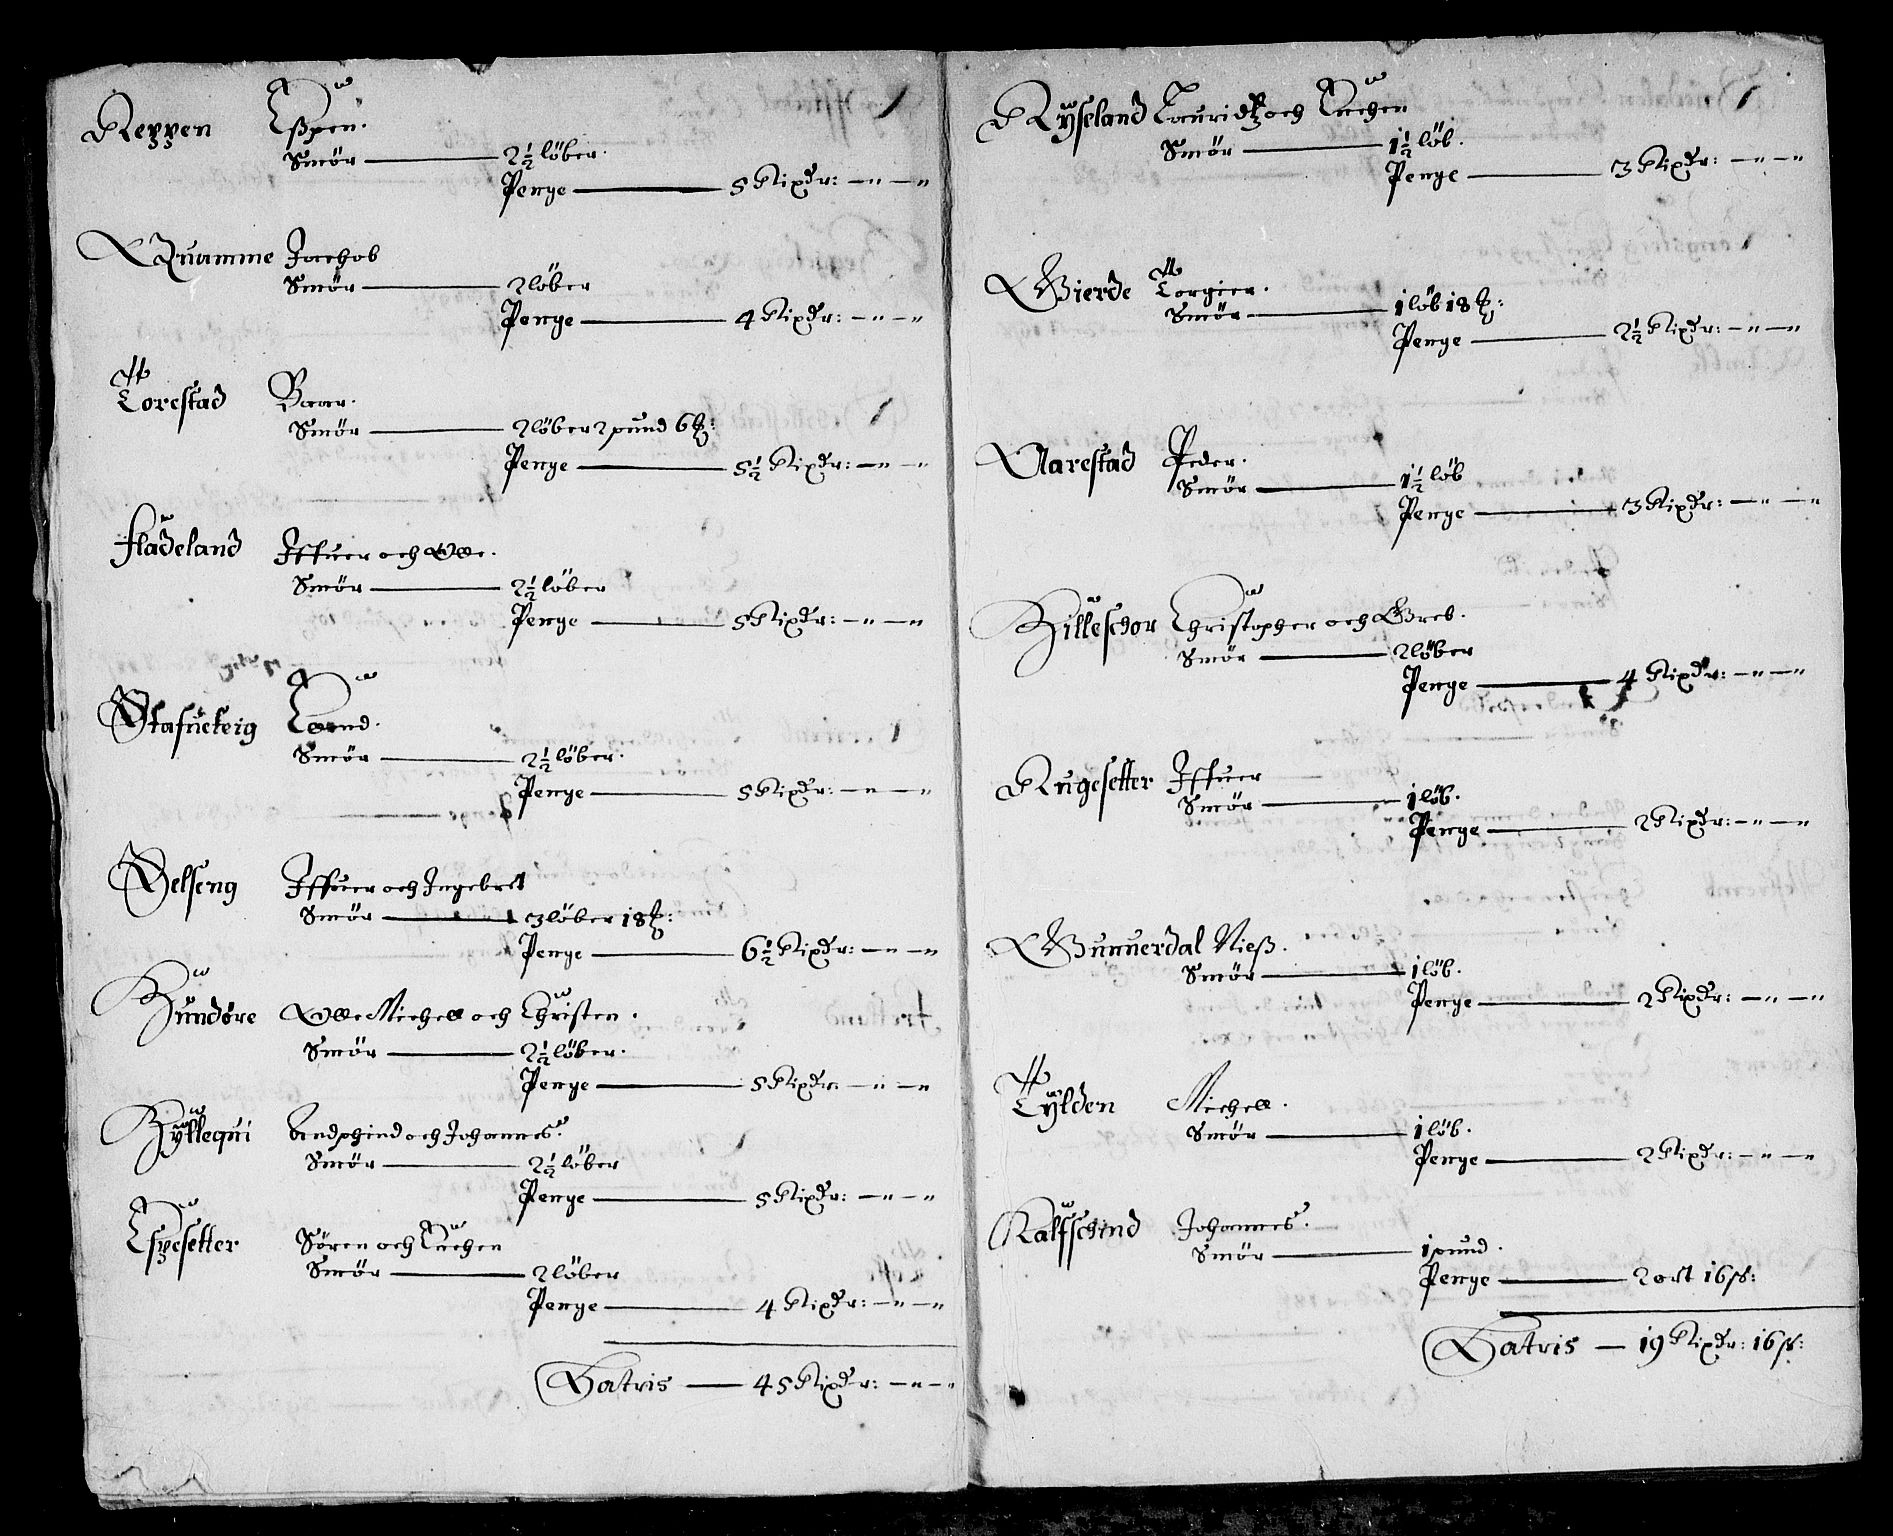 Reppen Espen.
Smör — 2½ löber.
Penge — 5 Rixdr: — " — "
Quamme Jachob
Smör — 2 löber
Penge — 4 Rixdr: — " — "
Torestad Baar.
Smör — 2 löber 2 pund 6 ℔:
Penge — 5½ Rixdr: — " — "
Flädeland Iffuer och Olle.
Smör — 2½ löber
Penge — 5 Rixdr: — " — "
Stafueteig Erend.
Smör — 2½ löber.
Penge — 5 Rixdr: — " — "
Selseng Iffuer och Ingebret
Smör — 3 löber 18 ℔:
Penge — 6½ Rixdr: — " — "
Hundøre Olle Michell och Christen.
Smör — 2½ löber.
Penge — 5 Rixdr: — " — "
Hÿllequi Andphind och Johannes.
Smör — 2½ löber
Penge — 5 Rixdr: — " — "
Espesetter Sören och Erichen
Smör — 2 löber
Penge — 4 Rixdr: — " — "
Latris — 45 Rixdr: — " — "
Rÿseland Lauridtz och Erichen
Smör — 1½ löb.
Penge — 3 Rixdr: — " — "
Gierde Torgier.
Smör — 1 löb 18 ℔:
Penge — 2½ Rixdr: — " — "
Aarestad Peder.
Smör — 1½ löb
Penge — 3 Rixdr: — " — "
Hillestor Christopher och Greb.
Smör — 2 löber
Penge — 4 Rixdr: — " — "
Rugesetter Iffuer
Smör — 1 löb.
Penge — 2 Rixdr: — " — "
Gunuerdal Nielß.
Smör — 1 löb.
Penge — 2 Rixdr: — " — "
Tÿlden Michell.
Smör — 1 löb.
Penge — 2 Rixdr: — " — "
Kalfschind Johannes.
Smör — 1 pund.
Penge — 2 ort 16 ß:
Latris — 19 Rixdr: 16 ß: